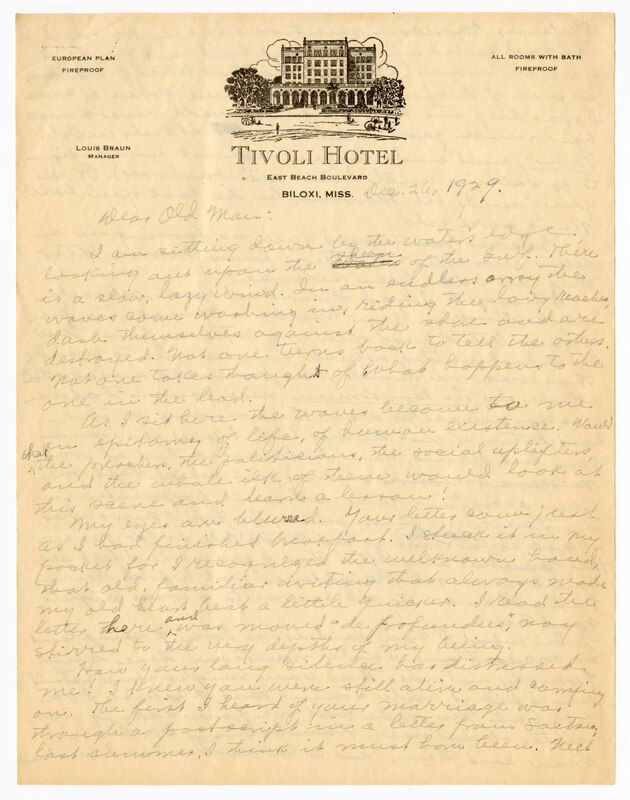 EUROPEAN PLAN
FIREPROOF
ALL ROOMS WITH BATH
FIREPROOF
LOUIS BRAUN
MANAGER
TIVOLI HOTEL
EAST BEACH BOULEVARD
BILOXI, MISS. Dec. 26, 1929.
Dear Old Man:
I am sitting down by the water's edge
looking out upon the sheen of the Gulf. There
is a slow, lazy wind. In an endless array the
waves come washing in, riding the long reaches,
dash themselves against the shore and are
destroyed. Not one turns back to tell the others.
Not one takes thought of what happens to the
one in the lead.
As I sit here the waves become to me
an epitome of life, of human existence. Would
that the preachers, the politicians, the social uplifters,
and the whole ilk of them would look at
this scene and learn a lesson!
My eyes are blurred. Your letter came just
as I had finished breakfast. I stuck it in my
pocket for I recognized the well known hand,
that old, familiar writing that always made
my old heart beat a little quicker. I read the
letter here and was moved "de profundis", nay
stirred to the very depths of my being.
How your long silence has distressed
me! I knew you were still alive and camping
on. The first I heard of your marriage was
through a postscript in a letter from
last summer, I think it must have been. Next